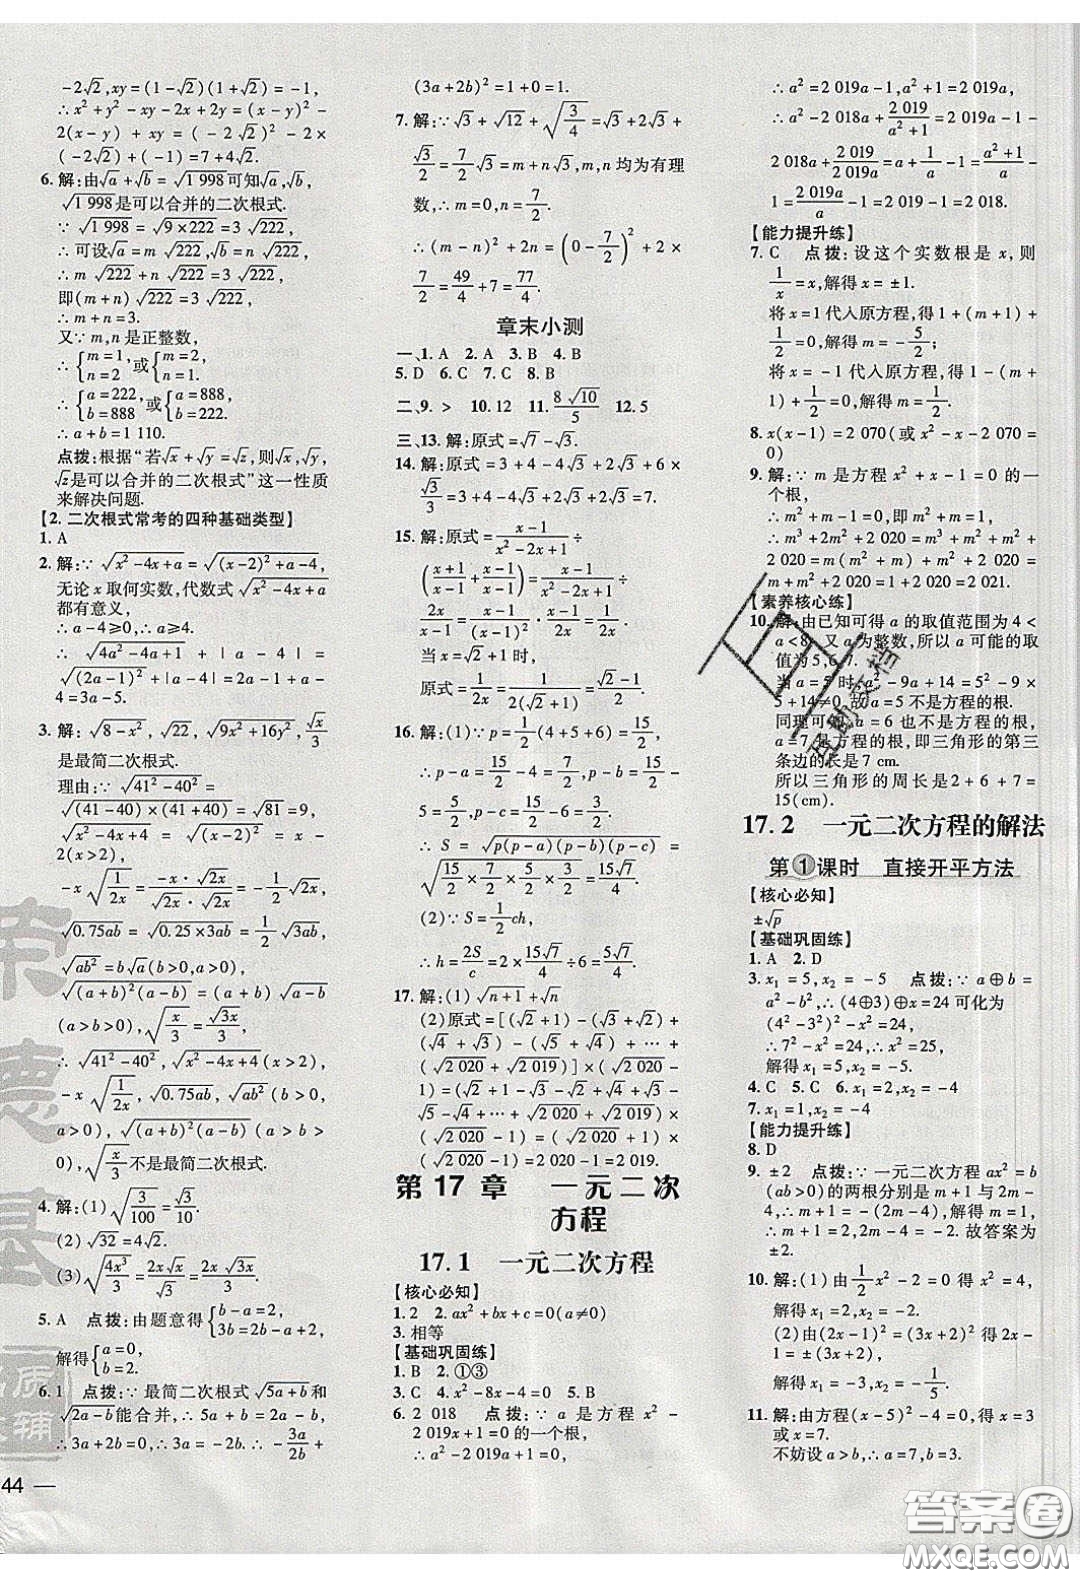 -2√2,xy=(1-√2)(1+√2)=-1,
∴x²+y²-xy-2x+2y=(x-y)²-
2(x-y)+xy=(-2√2)²-2×
(-2√2)+(-1)=7+4√2.
6. 解:由√a+√b=√1 998可知√a,√b,
√1 998是可以合并的二次根式.
∵√1 998=√9×222=3√222,
∴可设√a=m√222,√b=n√222,
∴m√222+n√222=3√222,
即(m+n)√222=3√222,
∴m+n=3.
又∵m,n是正整数,
∴{m=1, n=2 或{m=2, n=1,
∴{a=222, b=888 或{a=888, b=222,
∴a+b=1 110.
点拨:根据“若√x+√y=√z,则√x,√y,
√z是可以合并的二次根式”这一性质
来解决问题.
【2.二次根式常考的四种基础类型】
1. A
2. 解:∵√x²-4x+a=√(x-2)²+a-4,
无论x取何实数,代数式√x²-4x+a
都有意义,
∴a-4≥0,∴a≥4.
∴√4a²-4a+1+|a-4|=
√(2a-1)²+|a-4|=2a-1+a-4=
3a-5.
3. 解:√8-x²,√22,√9x²+16y²,√x/3
是最简二次根式.
理由:∵√41²-40²=
√(41-40)×(41+40)=√81=9,
√x²-4x+4=√(x-2)²=x-2,
-x√1/2x²=-x·√2x/√2x·√2x=-√2x/2,
√0.75ab=√0.25×3ab=1/2√3ab,
√ab²=b√a(b>0,a>0),
√(a+b)²(a-b)=(a+b)√a-b
(a>b>0),√x/3=√3x/3,
∴√41²-40²,√x²-4x+4(x>2),
-x√1/2x,√0.75ab,√ab²(b>0,
a>0),√(a+b)²(a-b)(a>b>
0),√x/3不是最简二次根式.
4. 解:(1)√3/100=√3/10.
(2)√32=4√2.
(3)√4x³/3=2x√x/√3=2x√3x/3.
5. A 点拨:由题意得{b-a=2, 3b=2a-b+8,
解得{a=0, b=2.
6. 1 点拨:∵最简二次根式√5a+b和
√2a-b能合并,∴5a+b=2a-b,
∴3a+2b=0,∴3a=-2b,∴-3a/2b=1,
44
(3a+2b)²=1+0=1.
7. 解:∵√3+√12+√3/4=√3+2√3+
√3/2=7/2√3=m+n√3,m,n均为有理
数,∴m=0,n=7/2.
∴(m-n)²+2n=(0-7/2)²+2×
7/2=49/4+7=77/4.
章末小测
一、1. A 2. A 3. B 4. B
5. D 6. C 7. C 8. B
二、9. > 10. 12 11. 8√10/5 12. 5
三、13. 解:原式=√7-√3.
14. 解:原式=3+4-4√3+2√3+6×
√3/3=7-4√3+2√3+2√3=7.
15. 解:原式=x-1/x²-2x+1÷
(x+1/x-1+x-1/x-1)=x-1/x²-2x+1÷
x+1+x-1/x-1=x-1/(x-1)²·x-1/2x=1/2x.
当x=√2+1时,
原式=1/2x=1/2(√2+1)=√2-1/2.
16. 解:(1)∵p=1/2(4+5+6)=15/2,
∴p-a=15/2-4=7/2,p-b=15/2-
5=5/2,p-c=15/2-6=3/2,
∴S=√p(p-a)(p-b)(p-c)=
√15/2×7/2×5/2×3/2=15√7/4.
(2)∵S=1/2ch,
∴h=2S/c=2×15√7/4÷6=5√7/4.
17. 解:(1)√n+1+√n
(2)原式=[(√2+1)-(√3+√2)+
(√4+√3)-(√5+√4)+…+
(√2 020+√2 019)]×(√2 020-
1)=(√2+1-√3-√2+√4+√3-
√5-√4+…+√2 020+√2 019)×
(√2 020-1)=(1+√2 020)×
(√2 020-1)=2 020-1=2 019.
第17章 一元二次
方程
17.1 一元二次方程
【核心必知】
1. 2 2. ax²+bx+c=0(a≠0)
3. 相等
【基础巩固练】
1. B 2. ①③
3. C 4. x²-8x-4=0 5. C
6. 2 018 点拨:∵a是方程x²-
2 019x+1=0的一个根,
∴a²-2 019a+1=0,
∴a²=2 019a-1,a²+1=2 019a,
∴a²-2 018a+2 019/a²+1=2 019a-1-
2 018a+2 019/2 019a=a+1/a-1=a²+1/a-
1=2 019a/a-1=2 019-1=2 018.
【能力提升练】
7. C 点拨:设这个实数根是x,则
1/x=x,解得x=±1.
将x=1代入原方程,得1+(m+1)+
1/2=0,解得m=-5/2;
将x=-1代入原方程,得1-(m+
1)+1/2=0,解得m=1/2.
8. x(x-1)=2 070(或x²-x-2 070=
0)
9. 解:∵m是方程x²+x-1=0的一
个根,
∴m²+m-1=0,∴m²+m=1,
∴m³+2m²+2 020=m³+m²+m²+
2 020=m(m²+m)+m²+2 020=
m+m²+2 020=1+2 020=2 021.
【素养核心练】
10. 解:由已知可得a的取值范围为4<
a<8.又a为整数,所以a可能的取
值为5,6,7.
当a=5时,a²-9a+14=5²-9×
5+14≠0.故a=5不是方程的根.
同理可知,a=6不是方程的根,
a=7是方程的根,即三角形的第三
条边的长是7 cm.
所以三角形的周长是2+6+7=
15(cm).
17.2 一元二次方程的解法
第①课时 直接开平方法
【核心必知】
±√p
【基础巩固练】
1. A 2. D
3. x₁=5,x₂=-5 点拨:∵a⊕b=
a²-b²,∴(4⊕3)⊕x=24可化为
(4²-3²)²-x²=24,
∴7²-x²=24,∴x²=25,
解得x₁=5,x₂=-5.
4. C 5. C 6. x₁=2,x₂=-4
7. x₁=1,x₂=-4
【能力提升练】
8. D
9. ±2 点拨:∵一元二次方程ax²=b
(ab>0)的两根分别是m+1与2m-
4,∴m+1=-(2m-4),解得m=1,
∴m+1=2,2m-4=-2.故答案为
±2.
10. 解:(1)由1/2x²-2=0得x²=4,
解得x₁=2,x₂=-2.
(2)由(2x-1)²=(3x+2)²得
2x-1=3x+2或2x-1=-(3x+
2),解得x₁=-3,x₂=-1/5.
11. 解:由方程(x-5)²-4=0得x=3
或x=7.
不妨设a>b,∴a=7,b=3.
答案卷
MXQE.COM